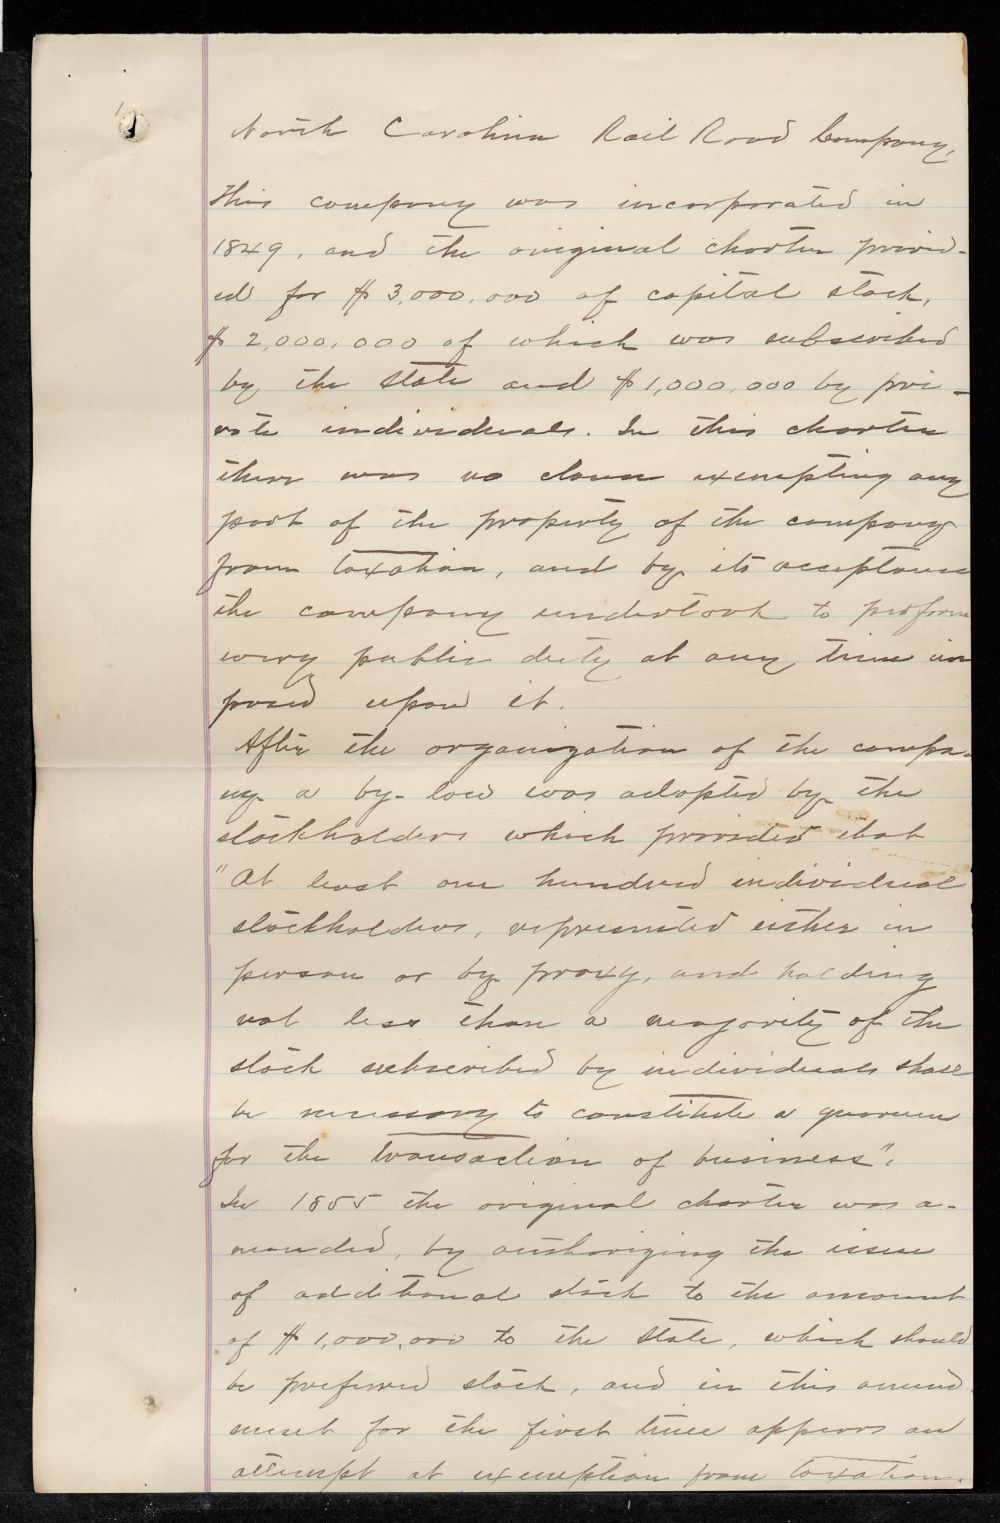 1
North Carolina Rail Road Company,
This company was incorporated in
1849, and the original charter provid-
ed for $3,000,000 of capital stock,
$2,000,000 of which was subscribed
by the State and $1,000,000 by pri-
vate individuals. In this charter
there was no clause exempting any
part of the property of the company
from taxation, and by its acceptance
the company undertook to perform
every public duty at any time im
posed upon it.
After the organization of the compa-
ny a by-law was adopted by the
stockholders which provided that
"At least one hundred individual
stockholders, represented either in
person or by proxy, and holding
not less than a majority of the
stock subscribed by individuals shall
be necessary to constitute a quorum
for the transaction of business".
In 1855 the original charter was a-
mended, by authorizing the issue
of additional stock to the amount
of $1,000,000 to the State, which should
be preferred stock, and in this amend
ment for the first time appears an
attempt at exemption from taxation.